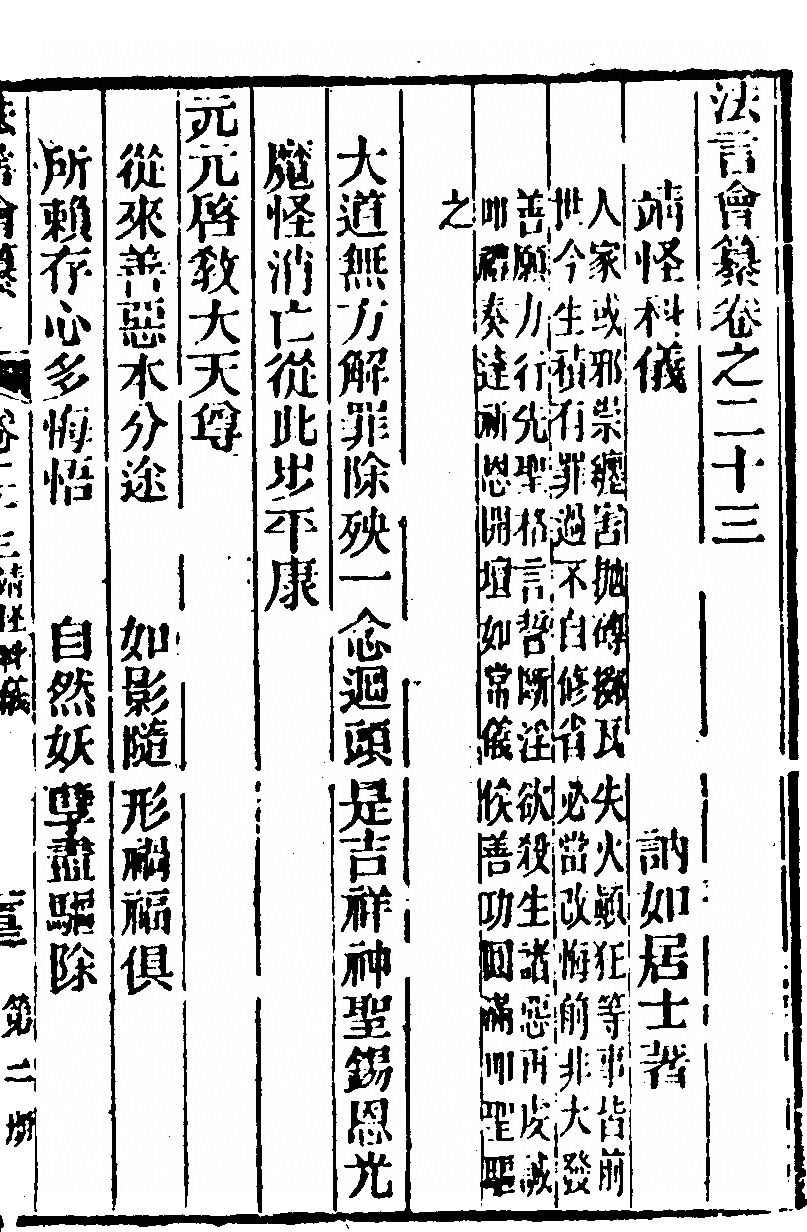 法言會纂卷之二十三
靖怪科儀　訥如居士著
人家或邪祟纏害拋磚擲瓦失火顛狂等事皆前
世今生積有罪過不自修省必當改悔前非大發
善願力行先聖格言誓斷淫欲殺生諸惡再虔誠
叩禮奏達祈恩開壇如常儀候善功圓滿叩聖驅
之
大道無方解罪除殃一念迴頭是吉祥神聖錫恩光
魔怪消亡從此步平康
元元啓教大天尊
從來善惡本分途　如影隨形禍福俱
所賴存心多悔悟　自然妖孽盡驅除
法言會纂　卷二十三靖怪科儀　第二